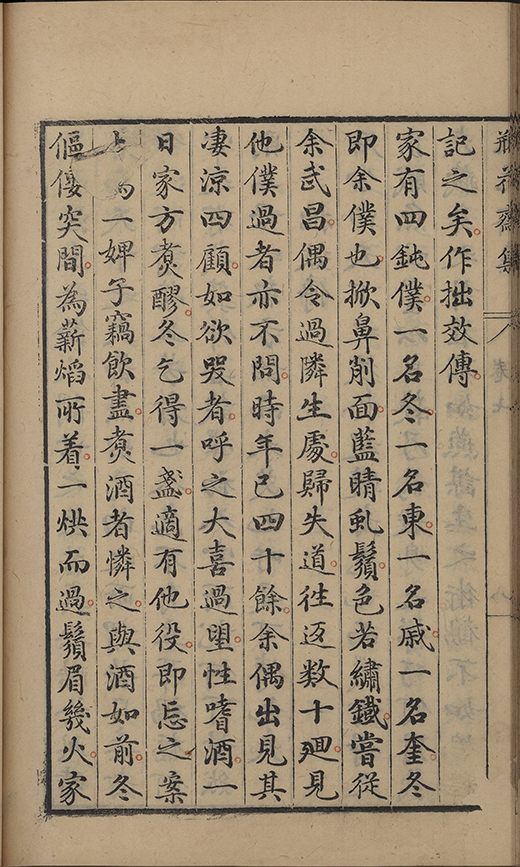 瓶花齋集 卷七 八
記之矣作拙效傳
家有四鈍僕一名冬一名東一名戚一名奎冬
即余僕也掀鼻削面藍睛虬鬚色若繡鐵嘗從
余武昌偶令過隣生處歸失道徃返數十廻見
他僕過者亦不問時年已四十餘余偶出見其
凄涼四顧如欲哭者呼之大喜過望性嗜酒一
日家方煑醪冬乞得一盞適有他役即忘之案
上為一婢子竊飲盡煑酒者憐之與酒如前冬
傴僂突間為薪焰所着一烘而過鬚眉幾火家